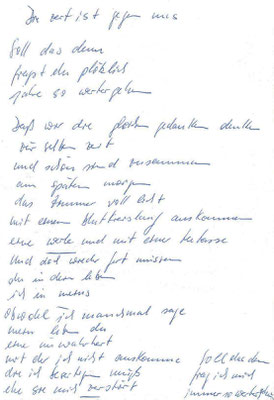 Die zeit ist gegen uns
Soll das denn
fragst du plötzlich
jahre so weitergehen
Daß wir die gleichen gedanken denken
zur selben zeit
und schön sind zusammen
am späten morgen
das zimmer voll licht
mit einer auskommen
eine weile und mit einer teetasse
und daß wieder fort müssen
du in dein leben
ich in meins
Obwohl ich manchmal sage
mein leben du
eine unwahrheit
mit der ich nicht auskomme
die ich beseitigen muß
ehe sie mich zerstört
Soll das denn
frag ich mich
immer so weitergehen